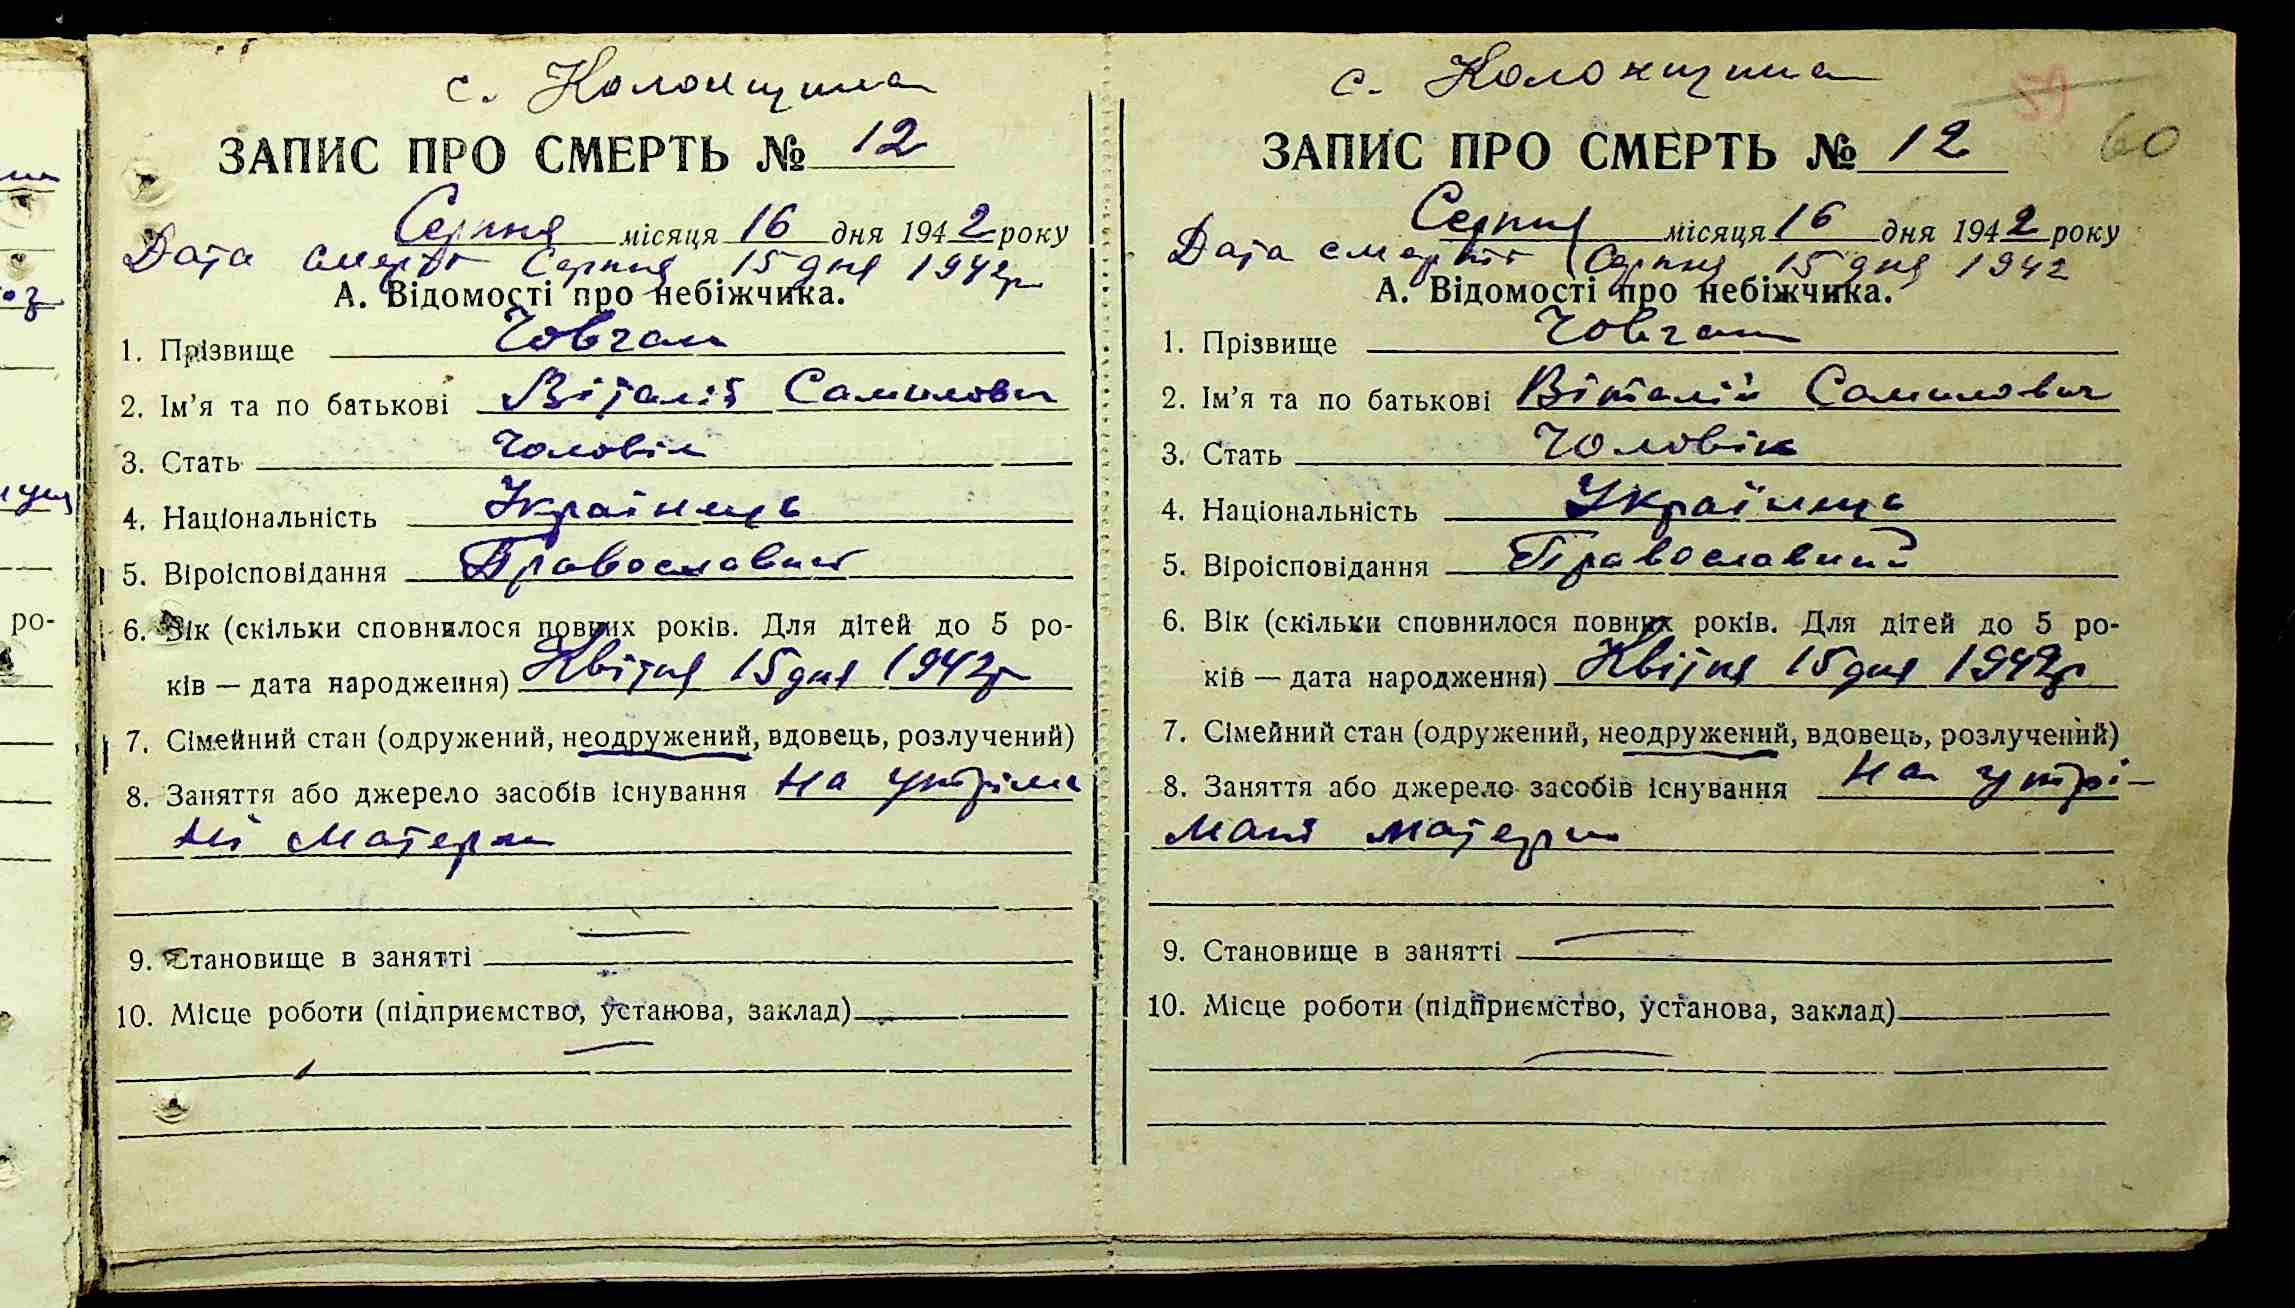 с. Колонщина
ЗАПИС ПРО СМЕРТЬ № 12
Серпня місяця 16 дня 1942 року
Дата смерті Серпня 15 дня 1942р
А. Відомості про небіжчика.
1. Прізвище Човган
2. Ім'я та по батькові Віталій Самилович
3. Стать Чоловік
4. Національність Українець
5. Віроісповідання Православний
6. Вік (скільки сповнилося повних років. Для дітей до 5 ро-
ків — дата народження) Квітня 15 дня 1942р
7. Сімейний стан (одружений, неодружений, вдовець, розлучений)
8. Заняття або джерело засобів існування На утріма
ні матери
9. Становище в занятті —
10. Місце роботи (підприємство, установа, заклад)
—
с. Колонщина
59 60
ЗАПИС ПРО СМЕРТЬ № 12
Серпня місяця 16 дня 1942 року
Дата смерті Серпня 15 дня 1942
А. Відомості про небіжчика.
1. Прізвище Човган
2. Ім'я та по батькові Віталій Самилович
3. Стать Чоловік
4. Національність Українець
5. Віроісповідання Православний
6. Вік (скільки сповнилося повних років. Для дітей до 5 ро-
ків — дата народження) Квітня 15 дня 1942р
7. Сімейний стан (одружений, неодружений, вдовець, розлучений)
8. Заняття або джерело засобів існування На утрі-
мані матери
9. Становище в занятті —
10. Місце роботи (підприємство, установа, заклад)
—
ро-